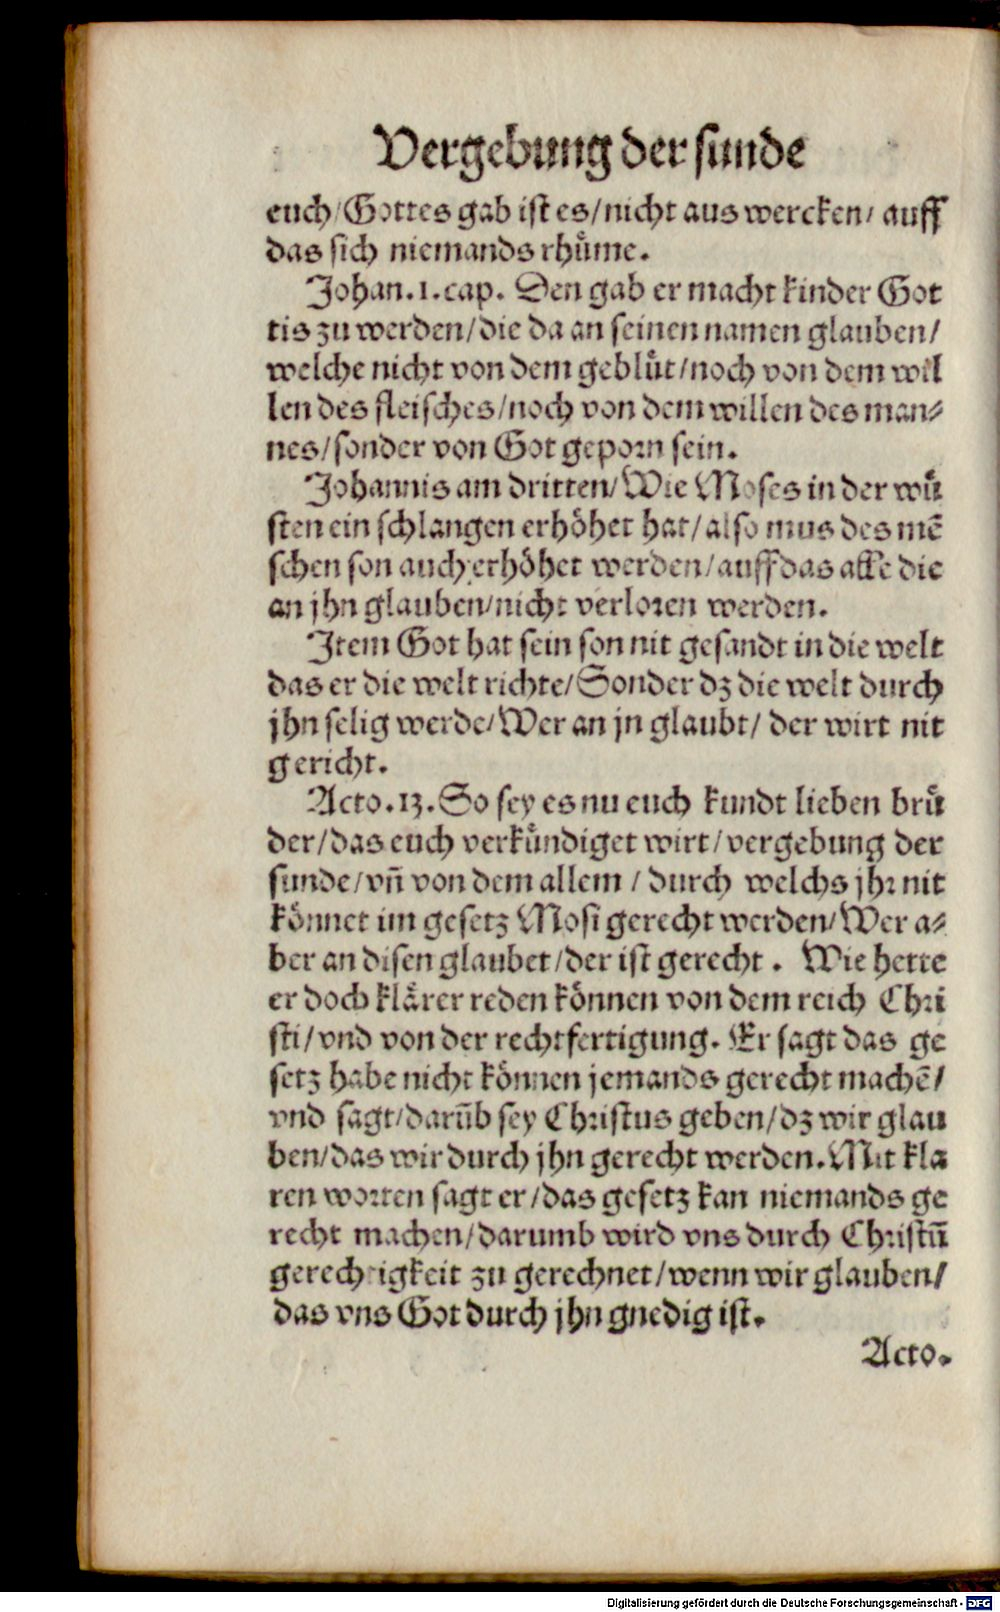 Vergebung der sunde
euch/Gottes gab ist es/nicht aus wercken/ auff
das sich niemands rhuͤme.
Johan.1.cap. Den gab er macht kinder Got
tis zu werden/die da an seinen namen glauben/
welche nicht von dem gebluͤt/noch von dem wil
len des fleisches/noch von dem willen des man⸗
nes/sonder von Got geporn sein.
Johannis am dritten/Wie Moses in der wuͤ
sten ein schlangen erhoͤhet hat/also mus des mē
schen son auch erhoͤhet werden/auff das alle die
an jhn glauben/nicht verloren werden.
Item Got hat sein son nit gesandt in die welt
das er die welt richte/Sonder dz die welt durch
jhn selig werde/Wer an jn glaubt/ der wirt nit
gericht.
Acto.13.So sey es nu euch kundt lieben bruͤ
der/das euch verkuͤndiget wirt/vergebung der
sunde/vn̄ von dem allem / durch welchs jhr nit
koͤnnet im gesetz Mosi gerecht werden/Wer a⸗
ber an disen glaubet/der ist gerecht . Wie hette
er doch klaͤrer reden koͤnnen von dem reich Chri
sti/vnd von der rechtfertigung. Er sagt das ge
setz habe nicht koͤnnen jemands gerecht machē/
vnd sagt/darūb sey Christus geben/dz wir glau
ben/das wir durch jhn gerecht werden.Mit kla
ren worten sagt er/das gesetz kan niemands ge
recht machen/darumb wird vns durch Christū
gerechtigkeit zu gerechnet/wenn wir glauben/
das vns Got durch jhn gnedig ist.
Acto.
Digitalisierung gefördert durch die Deutsche Forschungsgemeinschaft - DFG